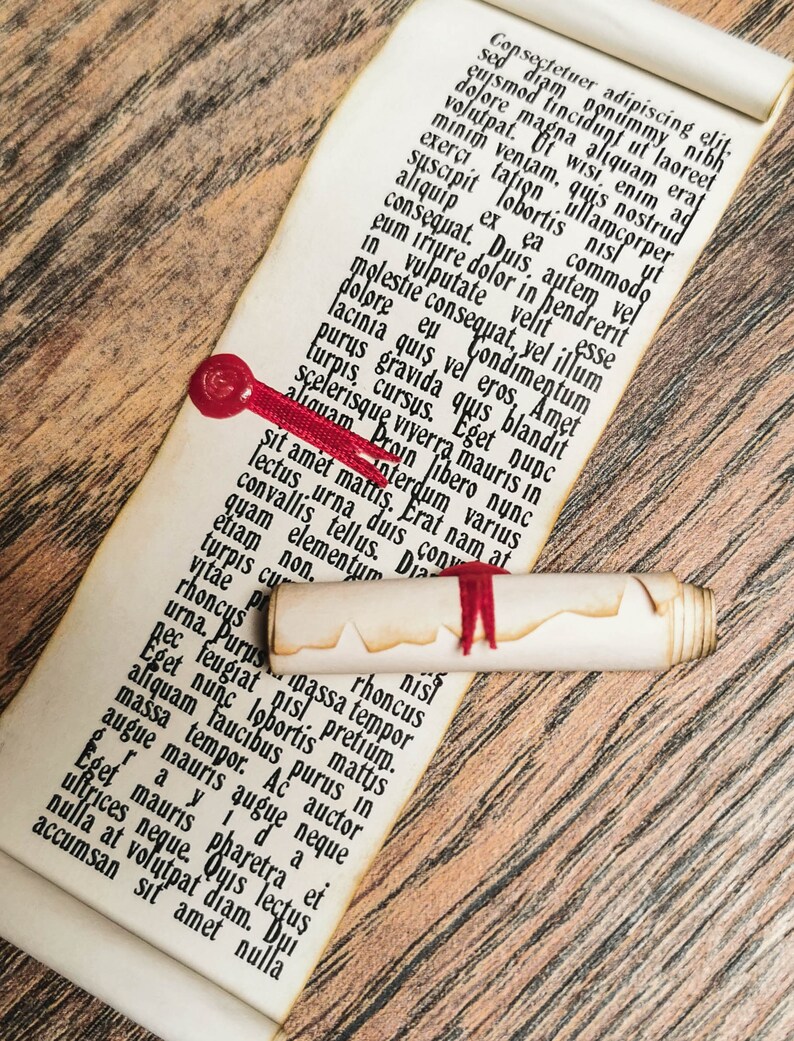 Consectetuer adipiscing elit,
sed diam nonummy nibh
euismod tincidunt ut laoreet
dolore magna aliquam erat
volutpat. Ut wisi enim ad
minim veniam, quis nostrud
exerci tation ullamcorper
suscipit lobortis nisl ut
aliquip ex ea commodo
consequat. Duis autem vel
eum iriure dolor in hendrerit
in vulputate velit esse
molestie consequat, vel illum
dolore eu Condimentum
lacinia quis vel eros. Amet
purus gravida quis blandit
turpis cursus. Eget nunc
scelerisque viverra mauris in
aliquam. Proin libero nunc
interdum varius
sit amet mattis. Erat nam at
lectus urna duis
convallis tellus.
quam elementum
etiam non.
turpis
vitae nisl
rhoncus rhoncus
urna. Purus massa tempor
nec feugiat nisl pretium.
Eget nunc lobortis mattis
aliquam faucibus purus in
massa tempor. Ac auctor
augue mauris augue neque
gravida.
Eget mauris pharetra et
ultrices neque. Quis lectus
nulla at volutpat diam. Dui
accumsan sit amet nulla